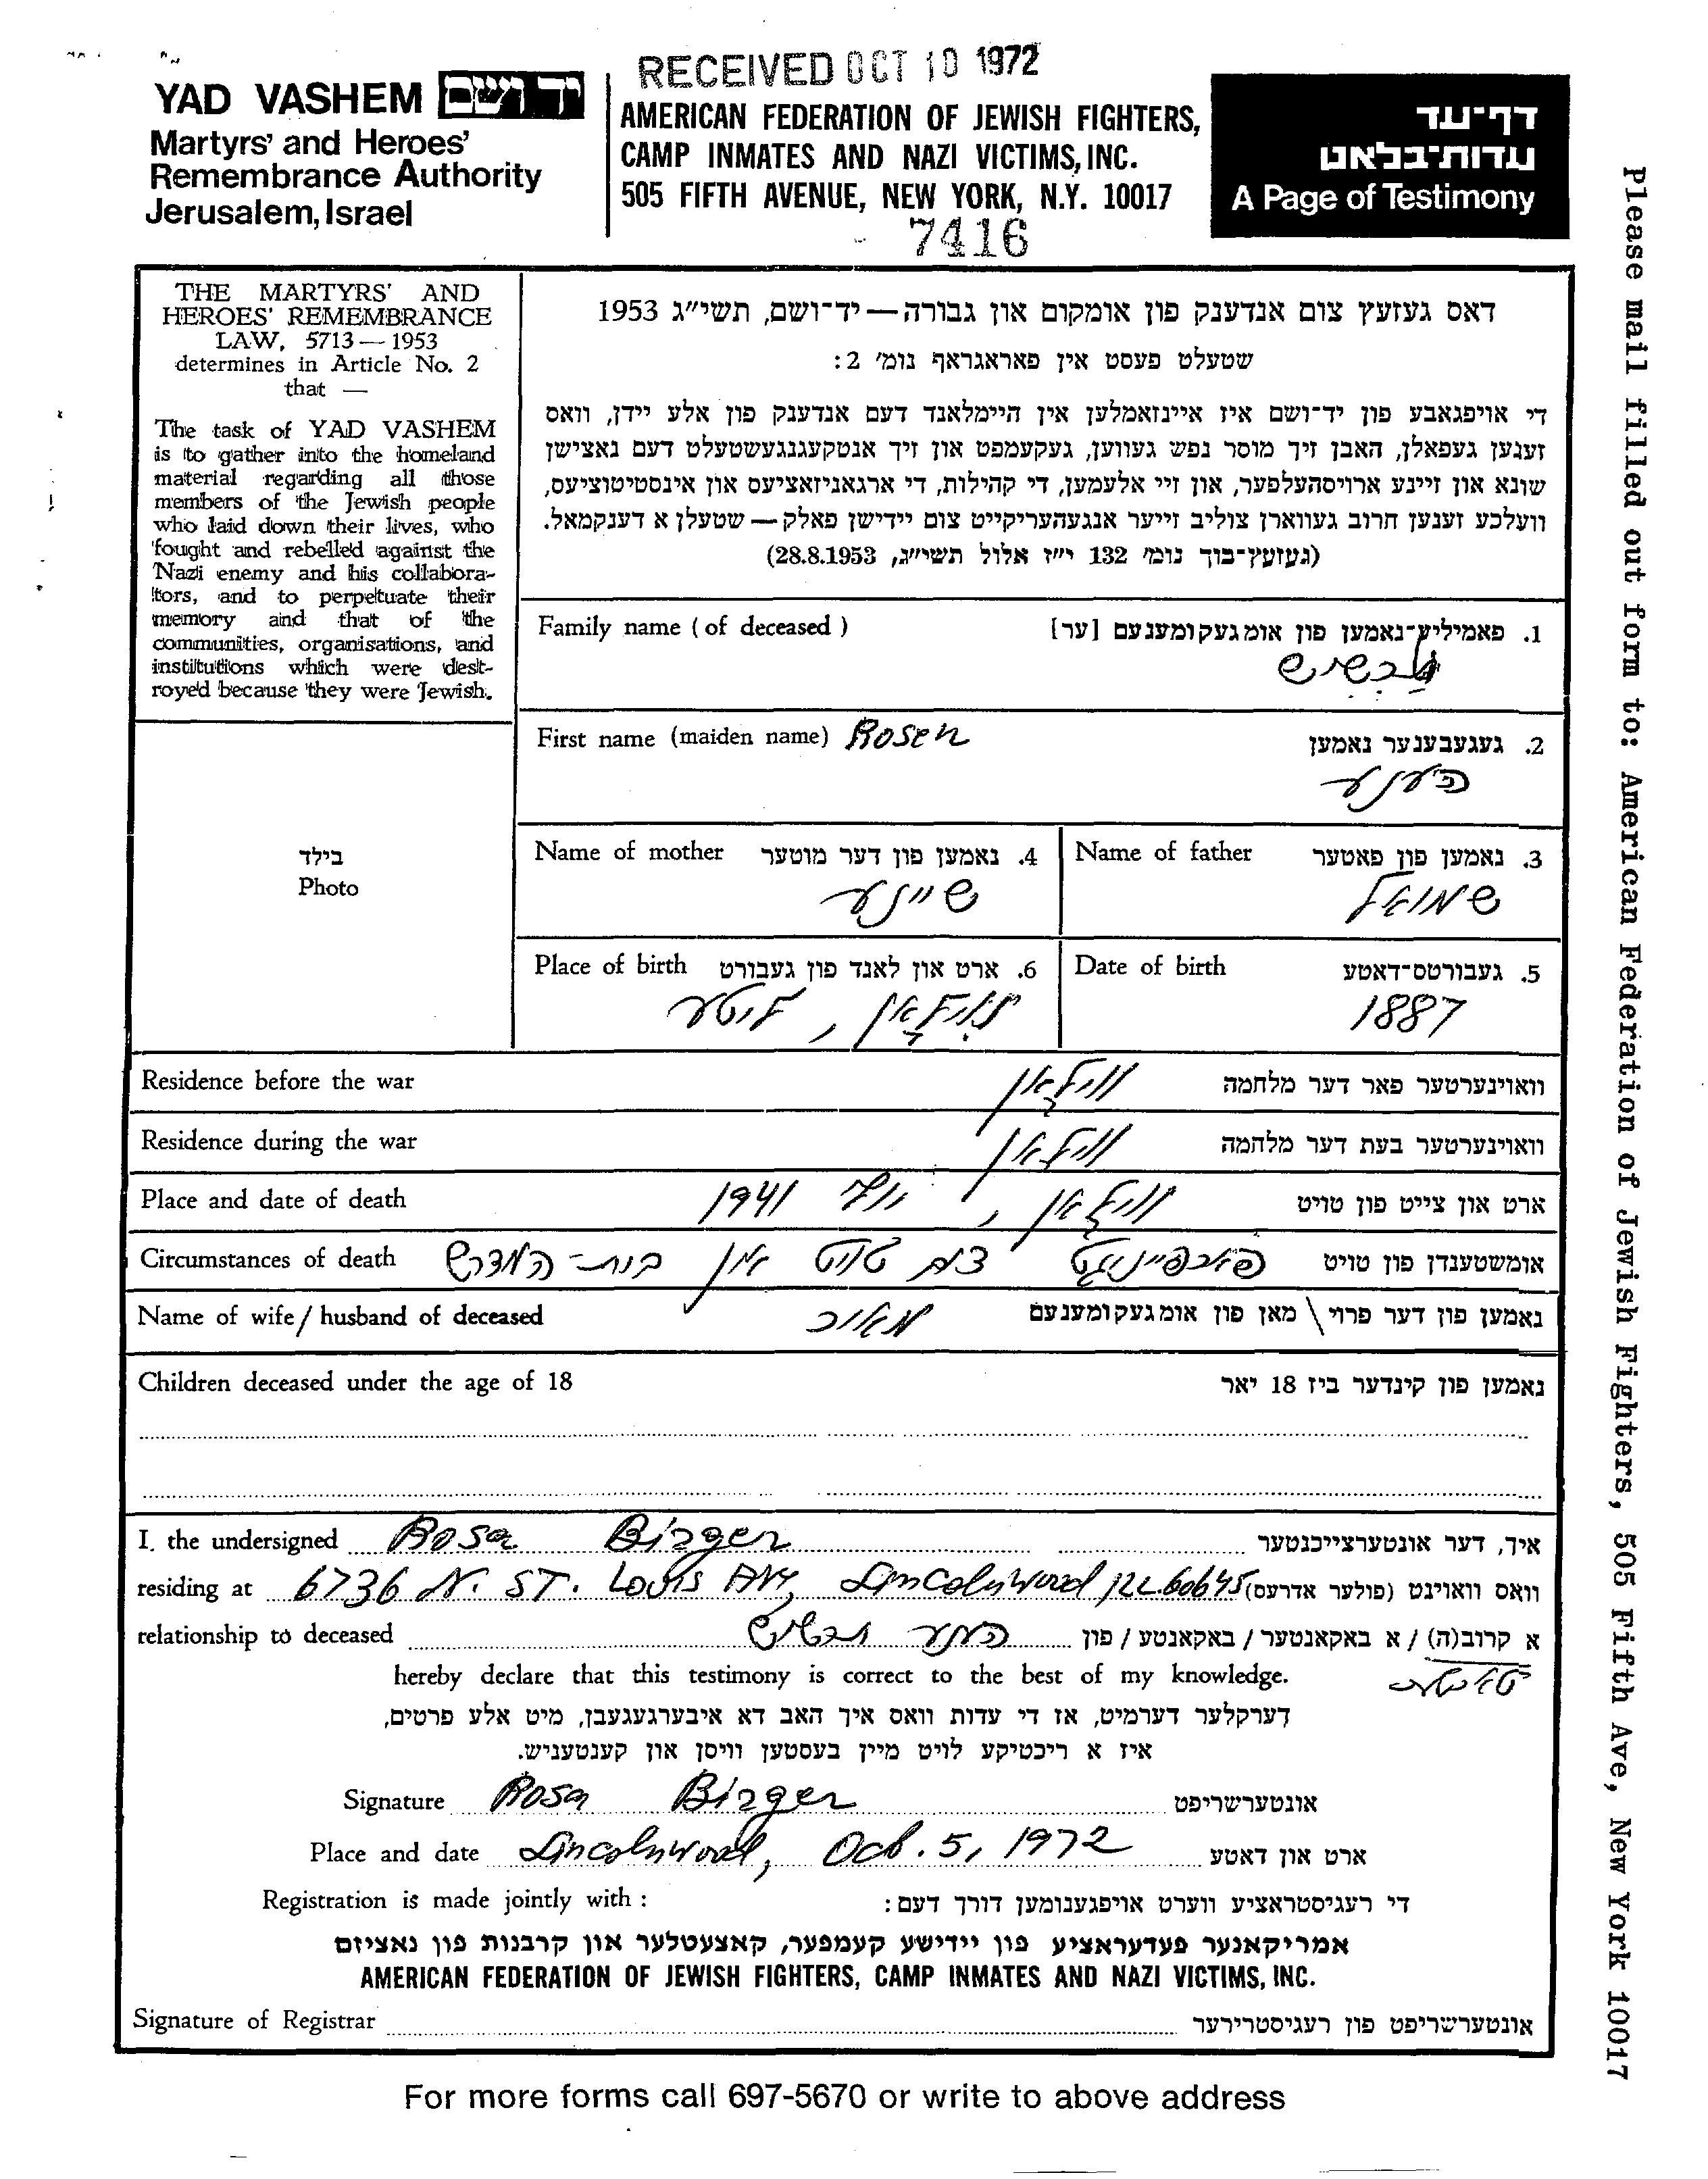 RECEIVED OCT 10 1972
YAD VASHEM יד ושם
Martyrs' and Heroes'
Remembrance Authority
Jerusalem, Israel
AMERICAN FEDERATION OF JEWISH FIGHTERS,
CAMP INMATES AND NAZI VICTIMS, INC.
505 FIFTH AVENUE, NEW YORK, N.Y. 10017
7416
דף־עד
עדות־בלאט
A Page of Testimony
Please mail filled out form to: American Federation of Jewish Fighters, 505 Fifth Ave, New York 10017
THE MARTYRS' AND
HEROES' REMEMBRANCE
LAW, 5713 — 1953
determines in Article No. 2
that —
The task of YAD VASHEM
is to gather into the homeland
material regarding all those
members of the Jewish people
who laid down their lives, who
fought and rebelled against the
Nazi enemy and his collabora-
tors, and to perpetuate their
memory and that of the
communities, organisations, and
institutions which were dest-
royed because they were Jewish.
דאס געזעץ צום אנדענק פון אומקום און גבורה — יד־ושם, תשי״ג 1953
שטעלט פעסט אין פאראגראף נומ׳ 2:
די אויפגאבע פון יד־ושם איז איינזאמלען אין היימלאנד דעם אנדענק פון אלע יידן, וואס
זענען געפאלן, האבן זיך מוסר נפש געווען, געקעמפט און זיך אנטקעגנגעשטעלט דעם נאצישן
שונא און זיינע ארויסהעלפער, און זיי אלעמען, די קהילות, די ארגאניזאציעס און אינסטיטוציעס,
וועלכע זענען חרוב געווארן צוליב זייער אנגעהעריקייט צום יידישן פאלק — שטעלן א דענקמאל.
(געזעץ־בוך נומ׳ 132 י״ז אלול תשי״ג, 28.8.1953)
Family name (of deceased) 1. פאמיליע־נאמען פון אומגעקומענעם [ער]
First name (maiden name) Rosen 2. געגעבענער נאמען
הענע
בילד
Photo
Name of mother 4. נאמען פון דער מוטער
שיינע
Name of father 3. נאמען פון פאטער
שמואל
Place of birth 6. ארט און לאנד פון געבורט
ליטע
Date of birth 5. געבורטס־דאטע
1887
Residence before the war ווילקאן וואוינערטער פאר דער מלחמה
Residence during the war ווילקאן וואוינערטער בעת דער מלחמה
Place and date of death ווילקאן, יולי 1941 ארט און צייט פון טויט
Circumstances of death פארפייניגט צום טויט אין בית-המדרש אומשטענדן פון טויט
Name of wife / husband of deceased מאיר נאמען פון דער פרוי \ מאן פון אומגעקומענעם
Children deceased under the age of 18 נאמען פון קינדער ביז 18 יאר
I, the undersigned Rosa Birger איך, דער אונטערצייכנטער
residing at 6736 N. ST. Louis Ave, Lincolnwood ILL. 60645 וואס וואוינט (פולער אדרעס)
relationship to deceased הענע א קרוב(ה) / א באקאנטער / באקאנטע / פון
טאכטער
hereby declare that this testimony is correct to the best of my knowledge.
דערקלער דערמיט, אז די עדות וואס איך האב דא איבערגעגעבן, מיט אלע פרטים,
איז א ריכטיקע לויט מיין בעסטען וויסן און קענטעניש.
Signature Rosa Birger אונטערשריפט
Place and date Lincolnwood, Oct. 5, 1972 ארט און דאטע
Registration is made jointly with: די רעגיסטראציע ווערט אויפגענומען דורך דעם:
אמריקאנער פעדעראציע פון יידישע קעמפער, קאצעטלער און קרבנות פון נאציזם
AMERICAN FEDERATION OF JEWISH FIGHTERS, CAMP INMATES AND NAZI VICTIMS, INC.
Signature of Registrar אונטערשריפט פון רעגיסטרירער
For more forms call 697-5670 or write to above address